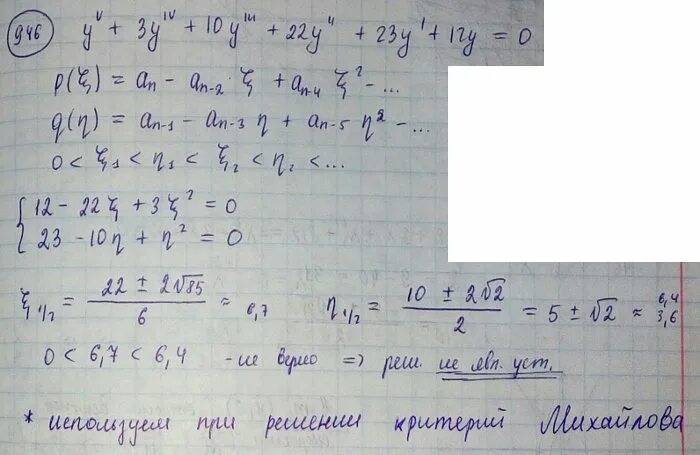 946 y^V + 3y^IV + 10y^III + 22y^II + 23y^I + 12y = 0
p(ξ) = a_n - a_{n-2} ξ + a_{n-4} ξ^2 - ...
q(η) = a_{n-1} - a_{n-3} η + a_{n-5} η^2 - ...
0 < ξ_1 < η_1 < ξ_2 < η_2 < ...
{ 12 - 22ξ + 3ξ^2 = 0
23 - 10η + η^2 = 0
ξ_{1/2} = (22 ± 2√85)/6 ≈ 6,7 η_{1/2} = (10 ± 2√2)/2 = 5 ± √2 ≈ 6,4 3,6
0 < 6,7 < 6,4 - не верно => реш. не явл. уст.
* используем при решении критерий Михайлова